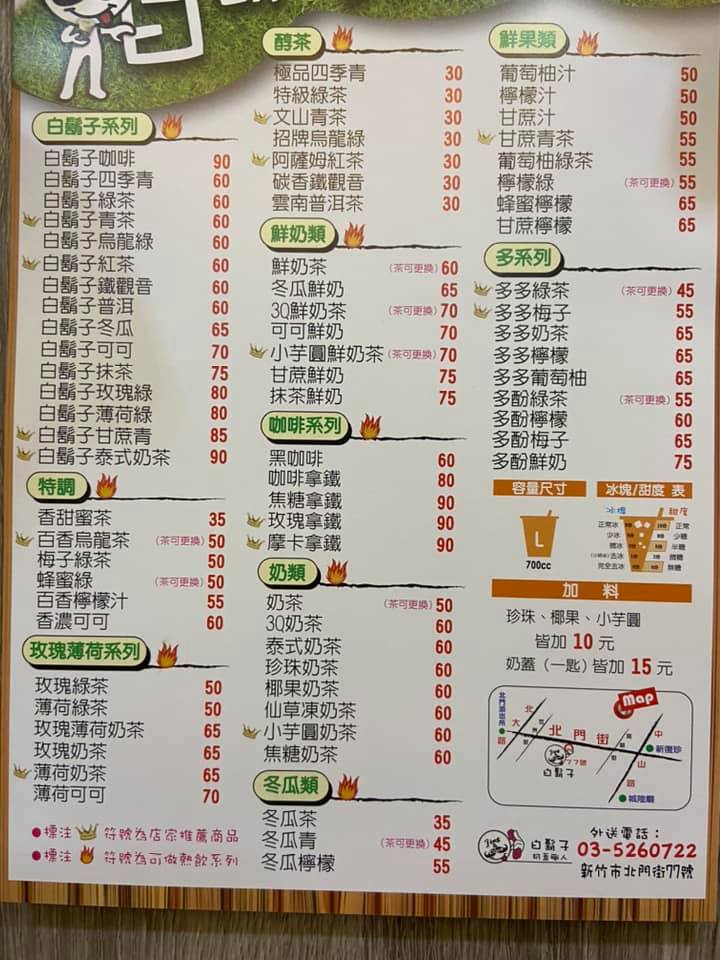 白鬍子系列
白鬍子咖啡 90
白鬍子四季青 60
白鬍子綠茶 60
白鬍子青茶 60
白鬍子烏龍綠 60
白鬍子紅茶 60
白鬍子鐵觀音 60
白鬍子普洱 60
白鬍子冬瓜 65
白鬍子可可 70
白鬍子抹茶 75
白鬍子玫瑰綠 80
白鬍子薄荷綠 80
白鬍子甘蔗青 85
白鬍子泰式奶茶 90
特調
香甜蜜茶 35
百香烏龍茶 (茶可更換) 50
梅子綠茶 50
蜂蜜綠 (茶可更換) 50
百香檸檬汁 55
香濃可可 60
玫瑰薄荷系列
玫瑰綠茶 50
薄荷綠茶 50
玫瑰薄荷奶茶 65
玫瑰奶茶 65
薄荷奶茶 65
薄荷可可 70
●標注 符號為店家推薦商品
●標注 符號為可做熱飲系列
醇茶
極品四季青 30
特級綠茶 30
文山青茶 30
招牌烏龍綠 30
阿薩姆紅茶 30
碳香鐵觀音 30
雲南普洱茶 30
鮮奶類
鮮奶茶 (茶可更換) 60
冬瓜鮮奶 65
3Q鮮奶茶 (茶可更換) 70
可可鮮奶 70
小芋圓鮮奶茶 (茶可更換) 70
甘蔗鮮奶 75
抹茶鮮奶 75
咖啡系列
黑咖啡 60
咖啡拿鐵 80
焦糖拿鐵 90
玫瑰拿鐵 90
摩卡拿鐵 90
奶類
奶茶 (茶可更換) 50
3Q奶茶 60
泰式奶茶 60
珍珠奶茶 60
椰果奶茶 60
仙草凍奶茶 60
小芋圓奶茶 60
焦糖奶茶 60
冬瓜類
冬瓜茶 35
冬瓜青 (茶可更換) 45
冬瓜檸檬 55
鮮果類
葡萄柚汁 50
檸檬汁 50
甘蔗汁 50
甘蔗青茶 55
葡萄柚綠茶 55
檸檬綠 (茶可更換) 55
蜂蜜檸檬 65
甘蔗檸檬 65
多系列
多多綠茶 (茶可更換) 45
多多梅子 55
多多奶茶 65
多多檸檬 65
多多葡萄柚 65
多酚綠茶 (茶可更換) 55
多酚檸檬 60
多酚梅子 65
多酚鮮奶 75
容量尺寸
L
700cc
冰塊/甜度 表
冰塊 甜度
正常冰 正常
少冰 少糖
微冰 半糖
去冰 微糖
完全去冰 無糖
加 料
珍珠、椰果、小芋圓
皆加 10 元
奶蓋 (一匙) 皆加 15 元
Map
北大路
北門街
中山路
新復珍
城隍廟
77號
白鬍子
白鬍子
外送電話：
03-5260722
新竹市北門街77號